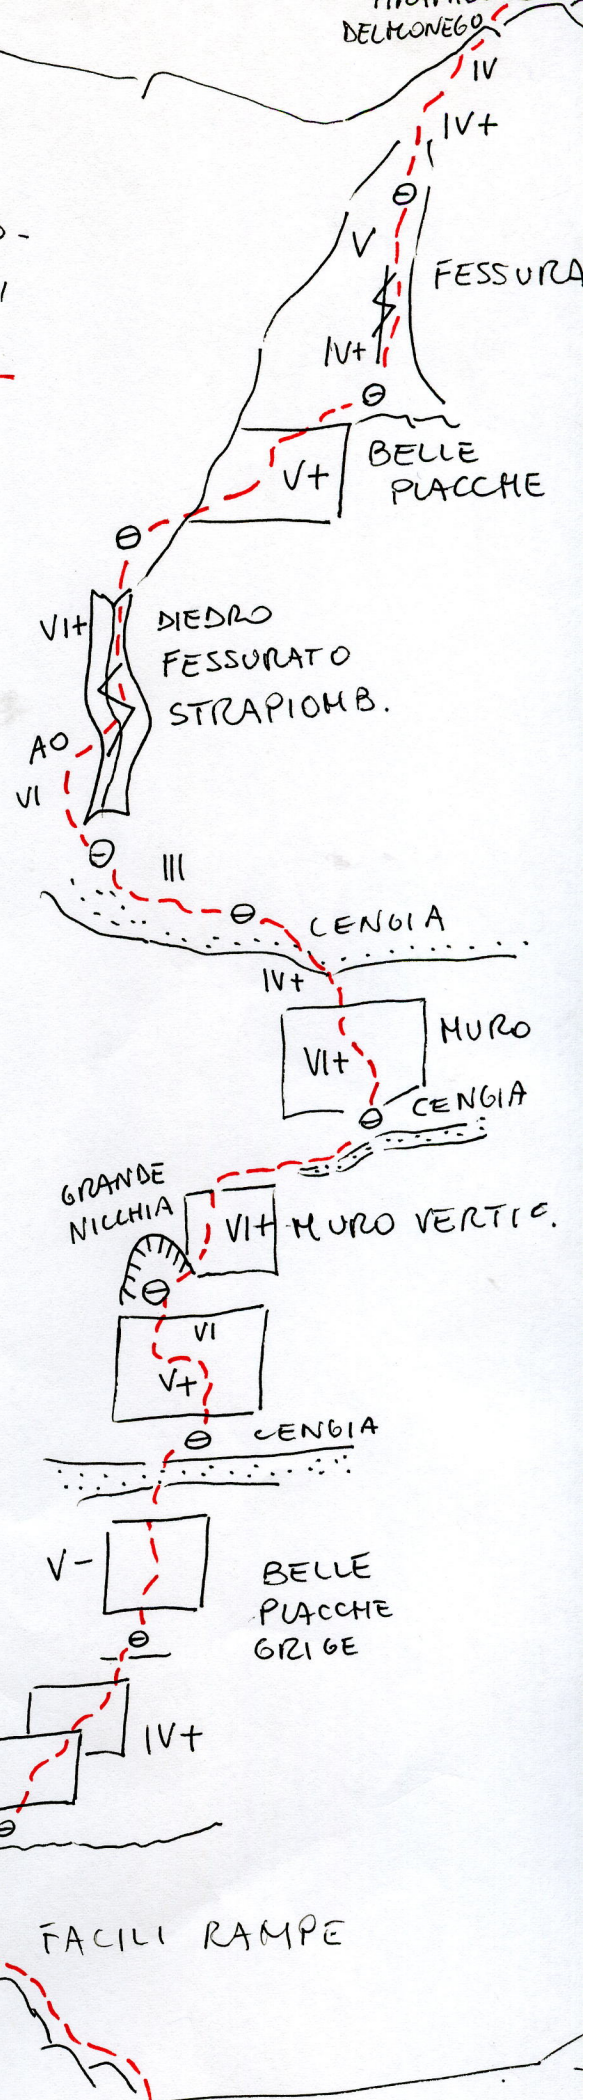 DELMONEGO
IV
IV+
V
FESSURA
IV+
BELLE
PLACCHE
V+
VI+
DIEDRO
FESSURATO
STRAPIOMB.
A0
VI
III
CENGIA
IV+
MURO
VI+
CENGIA
GRANDE
NICCHIA
VI+
MURO VERTIC.
VI
V+
CENGIA
V-
BELLE
PLACCHE
GRIGE
IV+
FACILI RAMPE